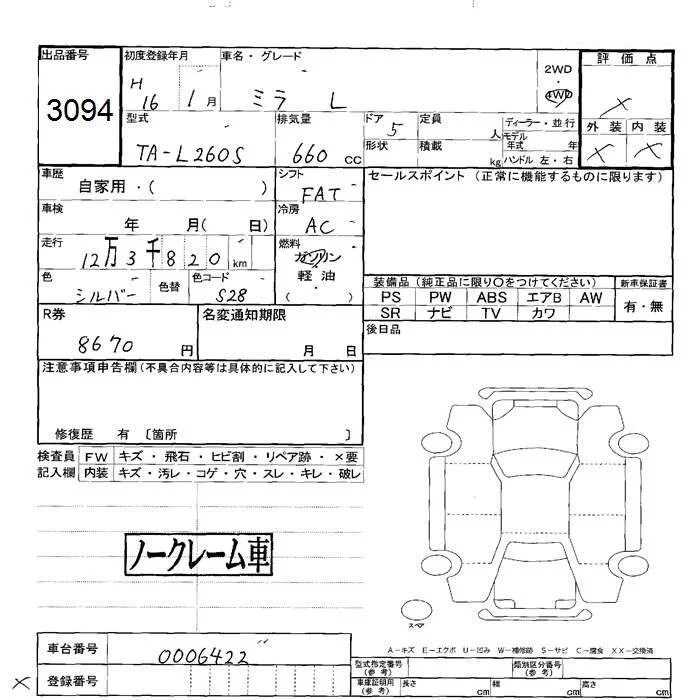 出品番号 初度登録年月 車名・グレード 2WD 評価点
3094 H 16 1月 ミラ L 4WD ×
型式 排気量 ドア 5 定員 人 ディーラー・並行 外装 内装
TA-L260S 660 CC 形状 積載 kg モデル年式 年 ハンドル 左・右 × ×
車歴 自家用・( ) シフト FAT セールスポイント (正常に機能するものに限ります)
車検 年 月( 日) 冷房 AC
走行 12万3千820 km 燃料 ガソリン・軽油・( )
色 シルバー 色替 色コード S28 装備品 (純正品に限り○をつけてください) 新車保証書
PS PW ABS エアB AW 有・無
R券 名変通知期限 SR ナビ TV カワ
8670 円 月 日 後日品
注意事項申告欄 (不具合内容等は具体的に記入して下さい)
修復歴 有 〔箇所 〕
検査員 FW キズ・飛石・ヒビ割・リペア跡・×要
記入欄 内装 キズ・汚レ・コゲ・穴・スレ・キレ・破レ
ノークレーム車
スペア
車台番号 0006422 A-キズ E-エクボ U-凹み W-補修跡 S-サビ C-腐食 XX-交換済
型式指定番号 (参考) 類別区分番号 (参考)
× 登録番号 車庫証明用 (参考) 長さ cm 幅 cm 高さ cm